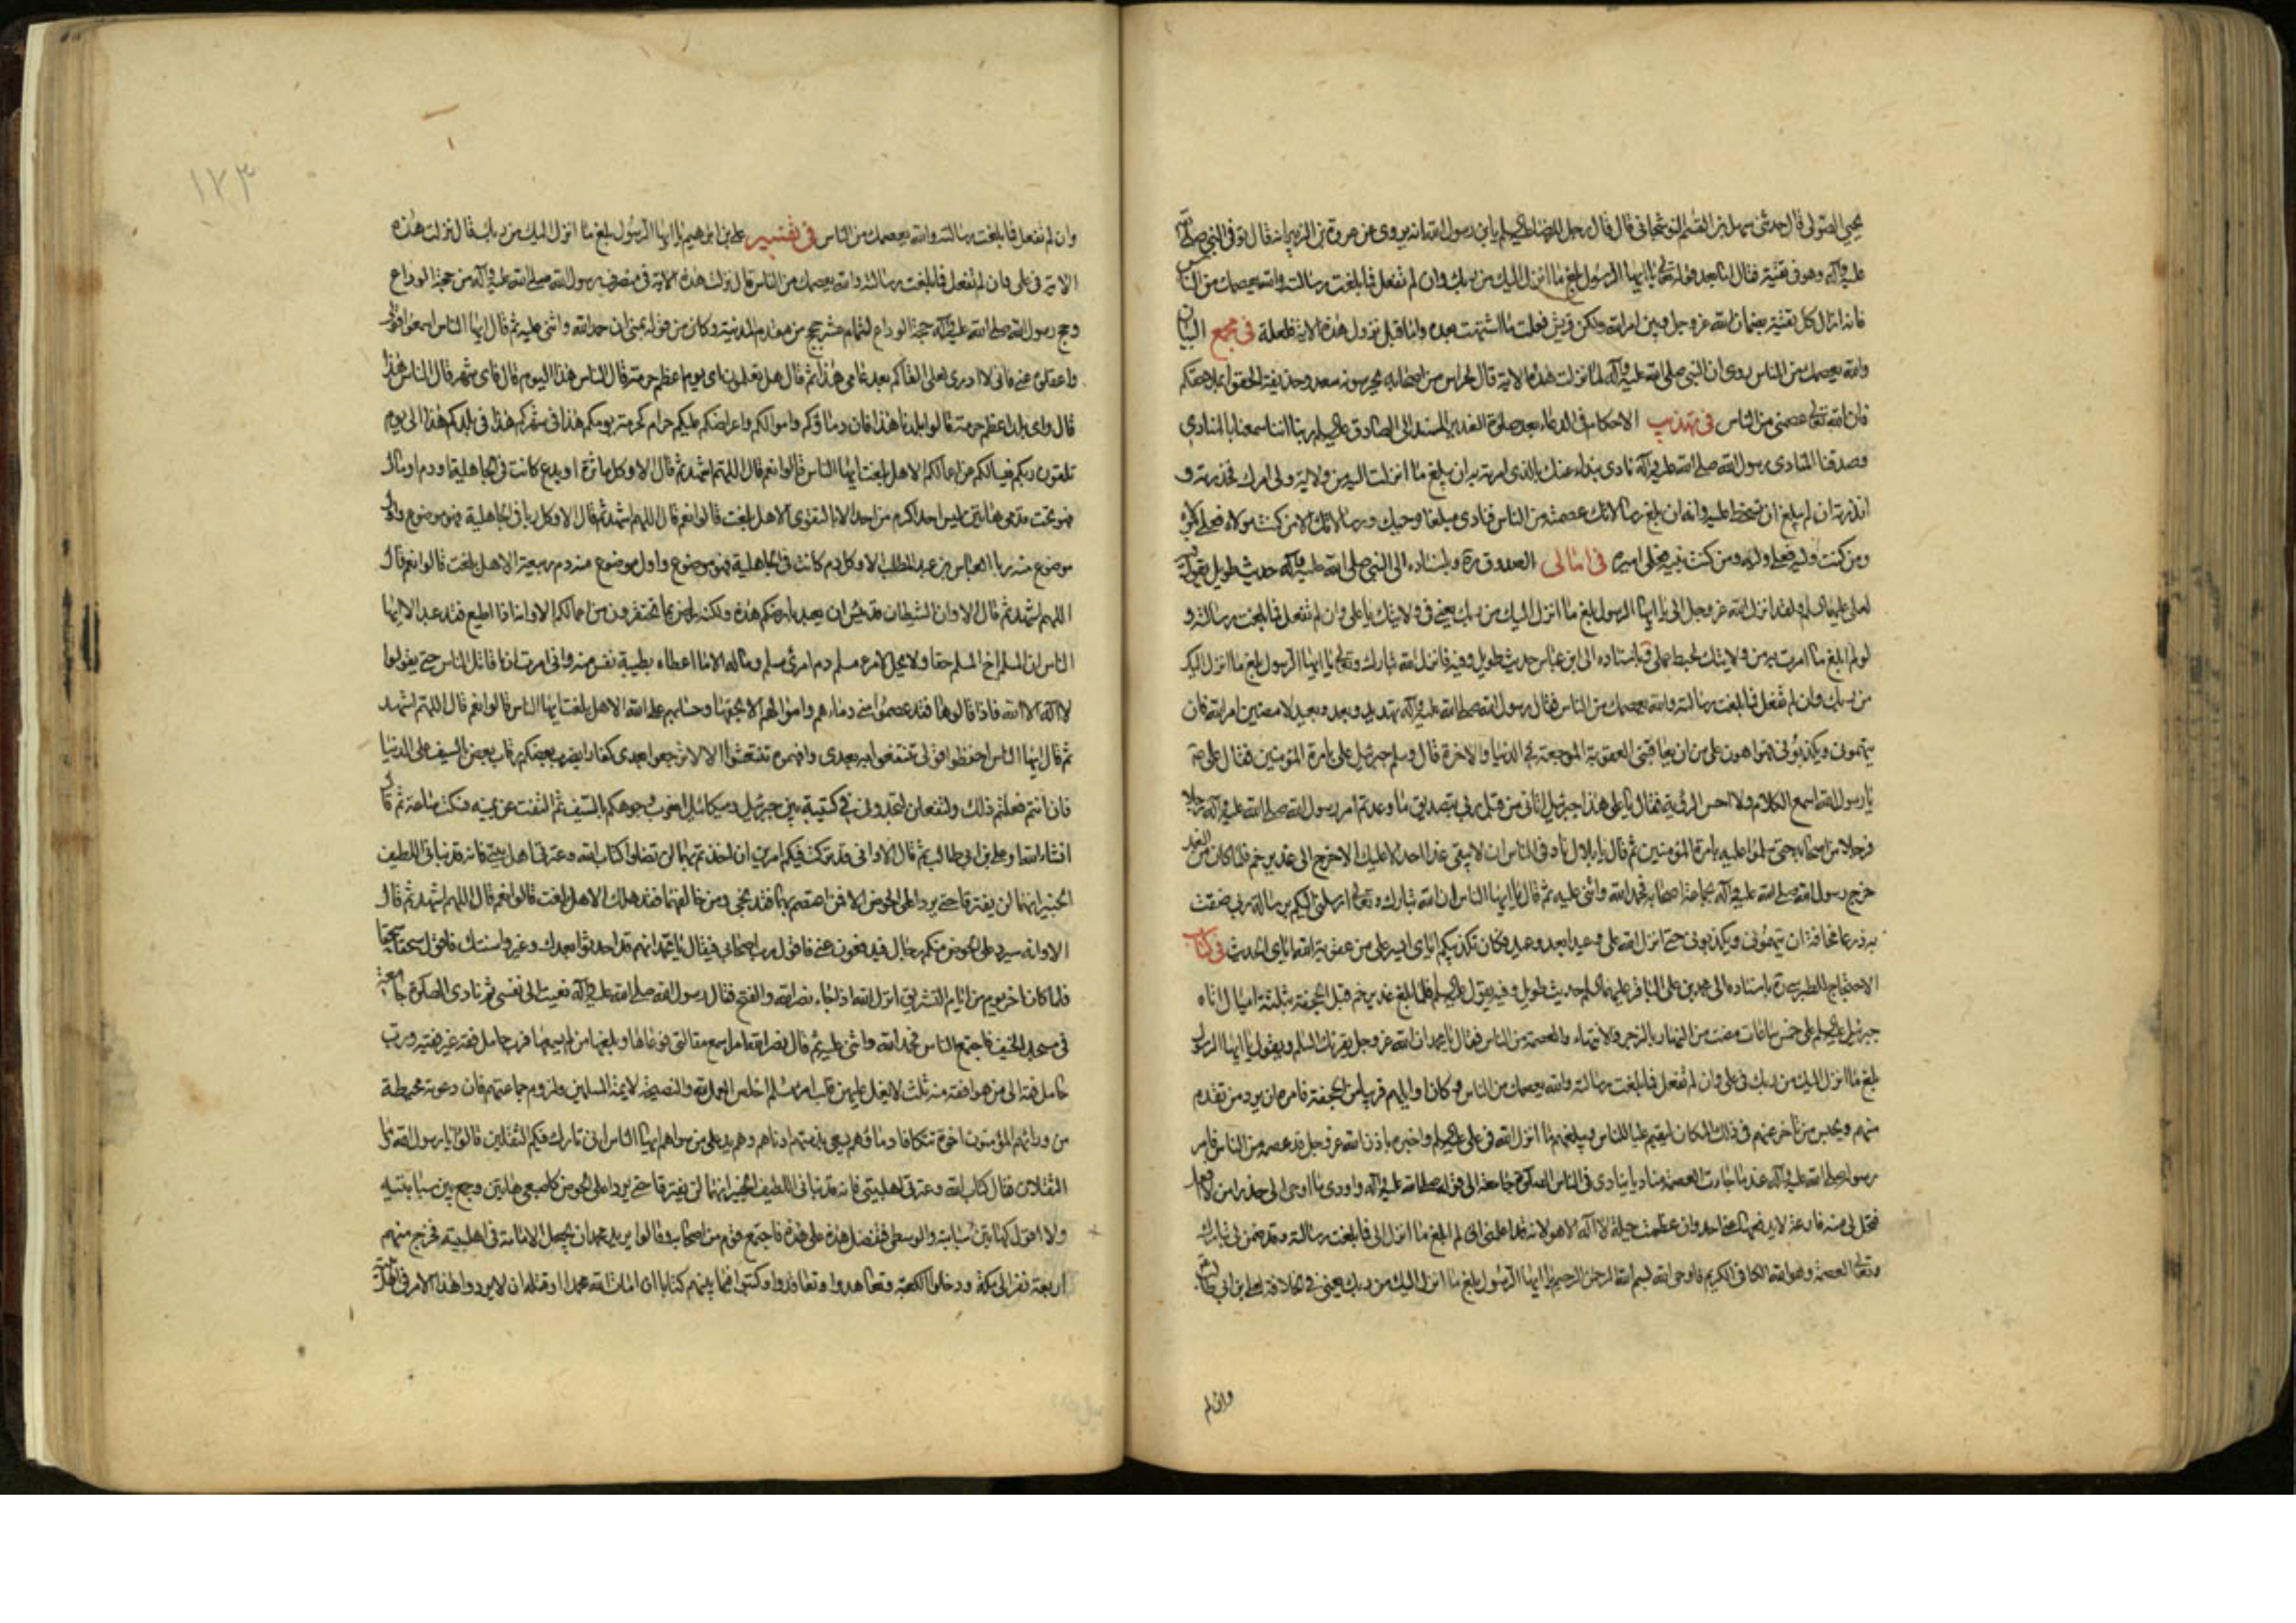 يحيى الصولى قال حدثنى سهل بن القسم النوشجانى قال قال رجل للرضا عليه السلم يابن رسول الله انه يروى عن عروة بن الزبير انه قال توفى النبى صلى الله
عليه وآله وهو فى تقية فقال اما بعد قوله تعالى يا ايها الرسول بلغ ما انزل اليك من ربك وان لم تفعل فما بلغت رسالته والله يعصمك من الناس
فانه ازال كل تقية بضمان الله عز وجل وبين امر الله ولكن قريش فعلت ما اشتهت بعده واما قبل نزول هذه الاية فلعله فى مجمع البيان
والله يعصمك من الناس روى ان النبى صلى الله عليه وآله لما نزلت هذه الاية قال لحراس من اصحابه يحرسونه سعد وحذيفة الحقوا بملاحقكم
فان الله تعالى عصمنى من الناس فى تهذيب الاحكام فى الدعاء بعد صلوة الغدير المسند الى الصادق عليه السلم ربنا اننا سمعنا بالمنادى
وصدقنا المنادى رسول الله صلى الله عليه وآله نادى بنداء عنك بالذى امرته به ان يبلغ ما انزلت اليه من ولاية ولى امرك فحذرته و
انذرته ان لم يبلغ ان تسخط عليه وانه ان بلغ رسالاتك عصمته من الناس فنادى مبلغا وحيك ورسالاتك الا من كنت مولاه فعلى مولاه
ومن كنت وليه فعلى وليه ومن كنت نبيه فعلى اميره فى امالى الصدوق ره باسناده الى النبى صلى الله عليه وآله حديث طويل يقول فيه
لعلى عليهما السلم ولقد انزل الله عز وجل الى يا ايها الرسول بلغ ما انزل اليك من ربك يعنى فى ولايتك يا على وان لم تفعل فما بلغت رسالته و
لو لم ابلغ ما امرت به من ولايتك لحبط عملى وباسناده الى ابن عباس حديث طويل وفيه فانزل الله تبارك وتعالى يا ايها الرسول بلغ ما انزل اليك
من ربك وان لم تفعل فما بلغت رسالته والله يعصمك من الناس فقال رسول الله صلى الله عليه وآله تهديد وبعد وعيد لامضين امر الله فان
يتهمونى ويكذبونى فهو اهون على من ان يعاقبنى العقوبة الموجعة فى الدنيا والاخرة قال وسلم جبرئيل على بامرة المؤمنين فقال على
يا رسول الله اسمع الكلام ولا احس الرؤية فقال يا على هذا جبرئيل اتانى من قبل ربى بتصديق ما وعدتم امر رسول الله صلى الله عليه وآله رجلا
فرجلا من اصحابه حتى سلموا عليه بامرة المؤمنين ثم قال يا بلال ناد فى الناس ان لا يبقى غدا احد الا عليل الا خرج الى غدير خم فلما كان من الغد
خرج رسول الله صلى الله عليه وآله بجماعة اصحابه فحمد الله واثنى عليه ثم قال يا ايها الناس ان الله تبارك وتعالى ارسلنى اليكم برسالة وانى ضقت
به ذرعا مخافة ان تتهمونى وتكذبونى حتى انزل الله على وعيدا بعد وعيد فكان تكذيبكم اياى ايسر على من عقوبة الله اياى الحديث فى كتاب
الاحتجاج للطبرسى ره باسناده الى محمد بن على الباقر عليهما السلم حديث طويل وفيه يقول عليه السلم فلما بلغ غدير خم قبل الجحفة بثلثة اميال اتاه
جبرئيل عليه السلم على خمس ساعات مضت من النهار بالزجر والانتهار والعصمة من الناس فقال يا محمد ان الله عز وجل يقرئك السلم ويقول يا ايها الرسول
بلغ ما انزل اليك من ربك فى على وان لم تفعل فما بلغت رسالته والله يعصمك من الناس وكان اوايلهم قريبا من الجحفة فامره ان يرد من تقدم
منهم ويحبس من تأخر عنهم فى ذلك المكان ليقيم عليا للناس ويبلغهم ما انزل الله فى على عليه السلم واخبره بان الله عز وجل قد عصمه من الناس فامر
رسول الله صلى الله عليه وآله عند ما جاءت العصمة مناديا ينادى فى الناس الصلوة جامعة الى قوله صلى الله عليه وآله واودى ما اوحى الى حذرا من ان لا افعل
فتحل بى منه قارعة لا يدفعها عنى احد وان عظمت حيلته لا اله الا هو لانه قد اعلمنى انى لم ابلغ ما انزل الى فما بلغت رسالته وقد ضمن لى تبارك
وتعالى العصمة وهو الله الكافى الكريم فاوحى الله بسم الله الرحمن الرحيم يا ايها الرسول بلغ ما انزل اليك من ربك يعنى فى الخلافة لعلى بن ابى طالب
وان لم
١٢٣
وان لم تفعل فما بلغت رسالته والله يعصمك من الناس فى تفسير على بن ابرهيم يا ايها الرسول بلغ ما انزل اليك من ربك قال نزلت هذه
الاية فى على وان لم تفعل فما بلغت رسالته والله يعصمك من الناس قال نزلت هذه الاية فى منصرف رسول الله صلى الله عليه وآله من حجة الوداع
وحج رسول الله صلى الله عليه وآله حجة الوداع لتمام عشر حجج من مقدمه المدينة وكان من قوله بمنى ان حمد الله واثنى عليه ثم قال ايها الناس اسمعوا قولى
واعقلوه عنى فانى لا ادرى لعلى لا القاكم بعد عامى هذا ثم قال هل تعلمون اى يوم اعظم حرمة قال الناس هذا اليوم قال فاى شهر قال الناس هذا
قال واى بلد اعظم حرمة قالوا بلدنا هذا قال فان دماؤكم واموالكم واعراضكم عليكم حرام كحرمة يومكم هذا فى شهركم هذا فى بلدكم هذا الى يوم
تلقون ربكم فيسالكم عن اعمالكم الا هل بلغت ايها الناس قالوا نعم قال اللهم اشهد ثم قال الا وكل ماثرة او بدع كانت فى الجاهلية او دم او مال
فهو تحت قدمى هاتين ليس احد اكرم من احد الا بالتقوى الا هل بلغت قالوا نعم قال اللهم اشهد ثم قال الا وكل ربا فى الجاهلية فهو موضوع واول
موضوع منه ربا العباس بن عبد المطلب الا وكل دم كانت فى الجاهلية فهو موضوع واول موضوع منه دم ربيعة الا هل بلغت قالوا نعم قال
اللهم اشهد ثم قال الا وان الشيطان قد يئس ان يعبد بارضكم هذه ولكنه راض بما تحتقرون من اعمالكم الا وانه اذا اطيع فقد عبد الا ايها
الناس ان المسلم اخ المسلم حقا ولا يحل لامرء مسلم دم امرئ مسلم وماله الا ما اعطاه بطيبة نفس منه وانى امرت ان اقاتل الناس حتى يقولوا
لا اله الا الله فاذا قالوها فقد عصموا منى دماءهم واموالهم الا بحقها وحسابهم على الله الا هل بلغت ايها الناس قالوا نعم قال اللهم اشهد
ثم قال ايها الناس احفظوا قولى تنتفعوا به بعدى وافهموه تنتعشوا الا لا ترجعوا بعدى كفارا يضرب بعضكم رقاب بعض بالسيف على الدنيا
فان انتم فعلتم ذلك ولتفعلن لتجدونى فى كتيبة بين جبرئيل وميكائيل اضرب وجوهكم بالسيف ثم التفت عن يمينه فسكت ساعة ثم قال
انشاء الله او على بن ابى طالب ثم قال الا وانى قد تركت فيكم امرين ان اخذتم بهما لن تضلوا كتاب الله وعترتى اهل بيتى فانه قد نبأنى اللطيف
الخبير انهما لن يفترقا حتى يردا على الحوض الا فمن اعتصم بهما فقد نجى ومن خالفهما فقد هلك الا هل بلغت قالوا نعم قال اللهم اشهد ثم قال
الا وانه سيرد على الحوض منكم رجال فيدفعون عنى فاقول رب اصحابى فيقال يا محمد انهم قد احدثوا بعدك وغيروا سنتك فاقول سحقا سحقا
فلما كان اخر يوم من ايام التشريق انزل الله اذا جاء نصر الله والفتح فقال رسول الله صلى الله عليه وآله نعيت الى نفسى ثم نادى الصلوة جامعة
فى مسجد الخيف فاجتمع الناس فحمد الله واثنى عليه ثم قال نضر الله امرء سمع مقالتى فوعاها وبلغها من لم يسمعها فرب حامل فقه غير فقيه ورب
حامل فقه الى من هو افقه منه ثلث لا يغل عليهن قلب امرء مسلم اخلاص العمل لله والنصيحة لائمة المسلمين ولزوم جماعتهم فان دعوته محيطة
من ورائهم المؤمنون اخوة تتكافا دماؤهم يسعى بذمتهم ادناهم وهم يد على من سواهم ايها الناس انى تارك فيكم الثقلين قالوا يا رسول الله وما
الثقلان فقال كتاب الله وعترتى اهل بيتى فانه قد نبأنى اللطيف الخبير انهما لن يفترقا حتى يردا على الحوض كاصبعى هاتين وجمع بين سبابتيه
ولا اقول كهاتين سبابته والوسطى فتفضل هذه على هذه فاجتمع قوم من اصحابه وقالوا يريد محمد ان يجعل الامامة فى اهل بيته فخرج منهم
اربعة نفر الى مكة ودخلوا الكعبة وتعاهدوا وتعاقدوا وكتبوا فيما بينهم كتابا ان امات الله محمدا او قتله ان لا يردوا هذا الامر فى اهل بيته